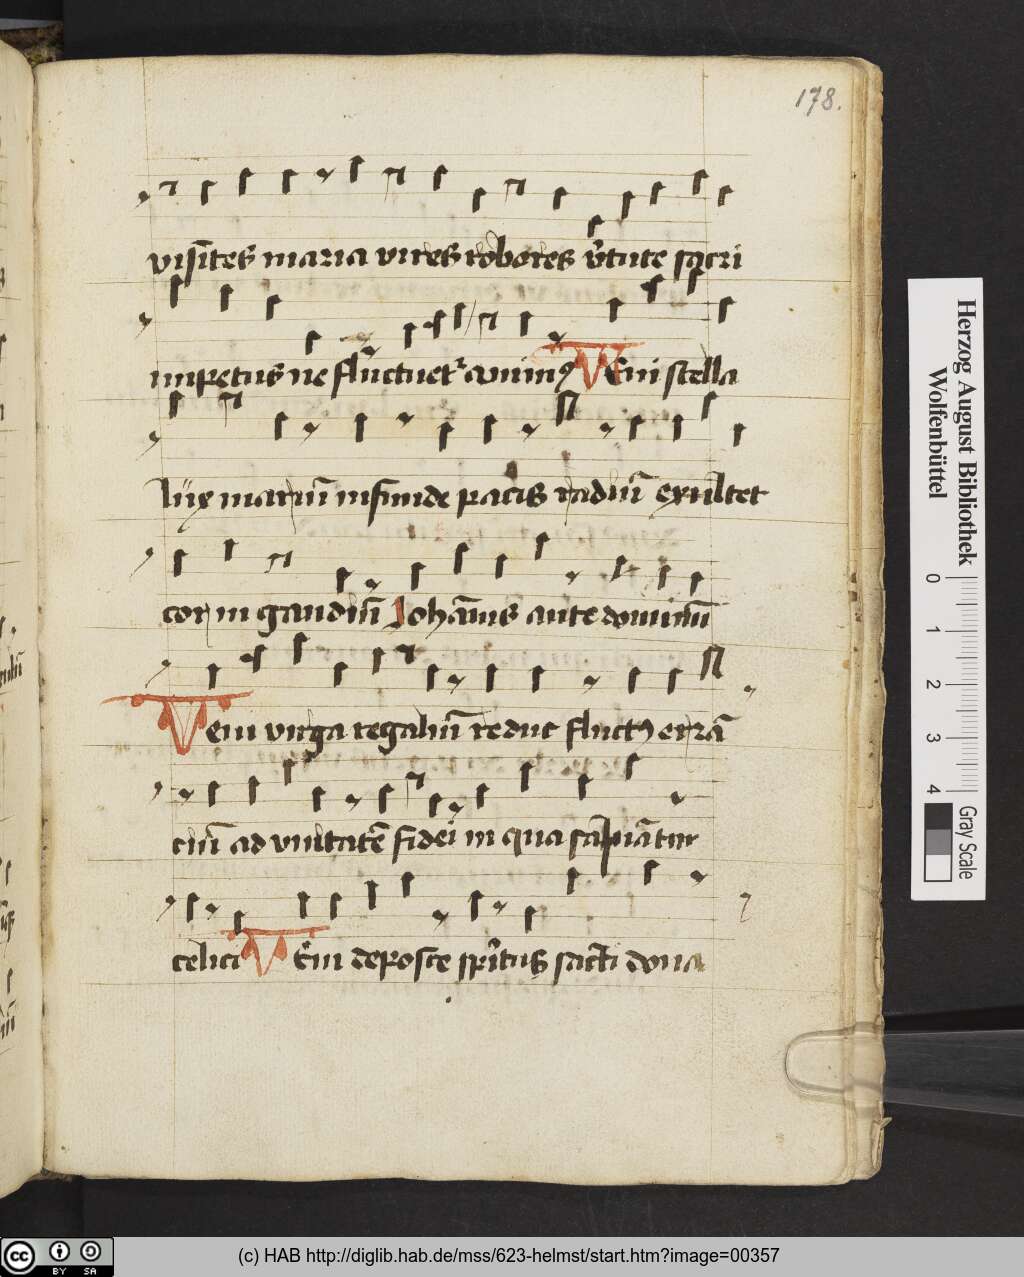 178.
visi͞tes maria vires robores v̓tute sacri
impetus ne fluctuet᷑ animꝰ VEni stella
lux mariu᷑m infunde pacis radiu͞ exultet
cor in gaudiu͞ Joha͞nis ante dominu͞
Veni virga regaliu͞ reduc fluctꝰ erra͞
ciu͞ ad vnitate͞ fidei in qua salvia͞tur
celici VEni deposce sp͞ritus sancti dona
Herzog August Bibliothek
Wolfenbüttel
0 1 2 3 4
Gray Scale
cc BY SA
(c) HAB http://diglib.hab.de/mss/623-helmst/start.htm?image=00357